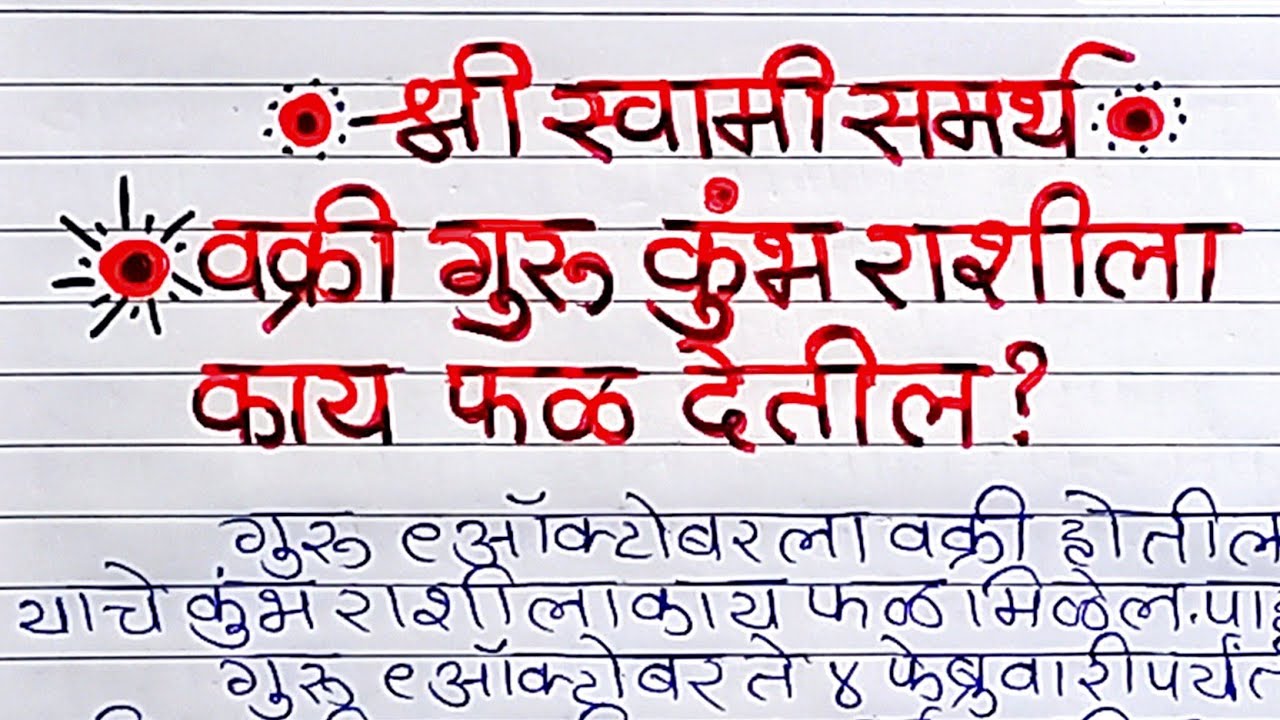 श्री स्वामी समर्थ
वक्री गुरू कुंभ राशीला
काय फळ देतील?
गुरू ९ ऑक्टोबरला वक्री होतील
याचे कुंभ राशीला काय फळ मिळेल. पा
गुरू ९ ऑक्टोबर ते ४ फेब्रुवारी पर्यंत